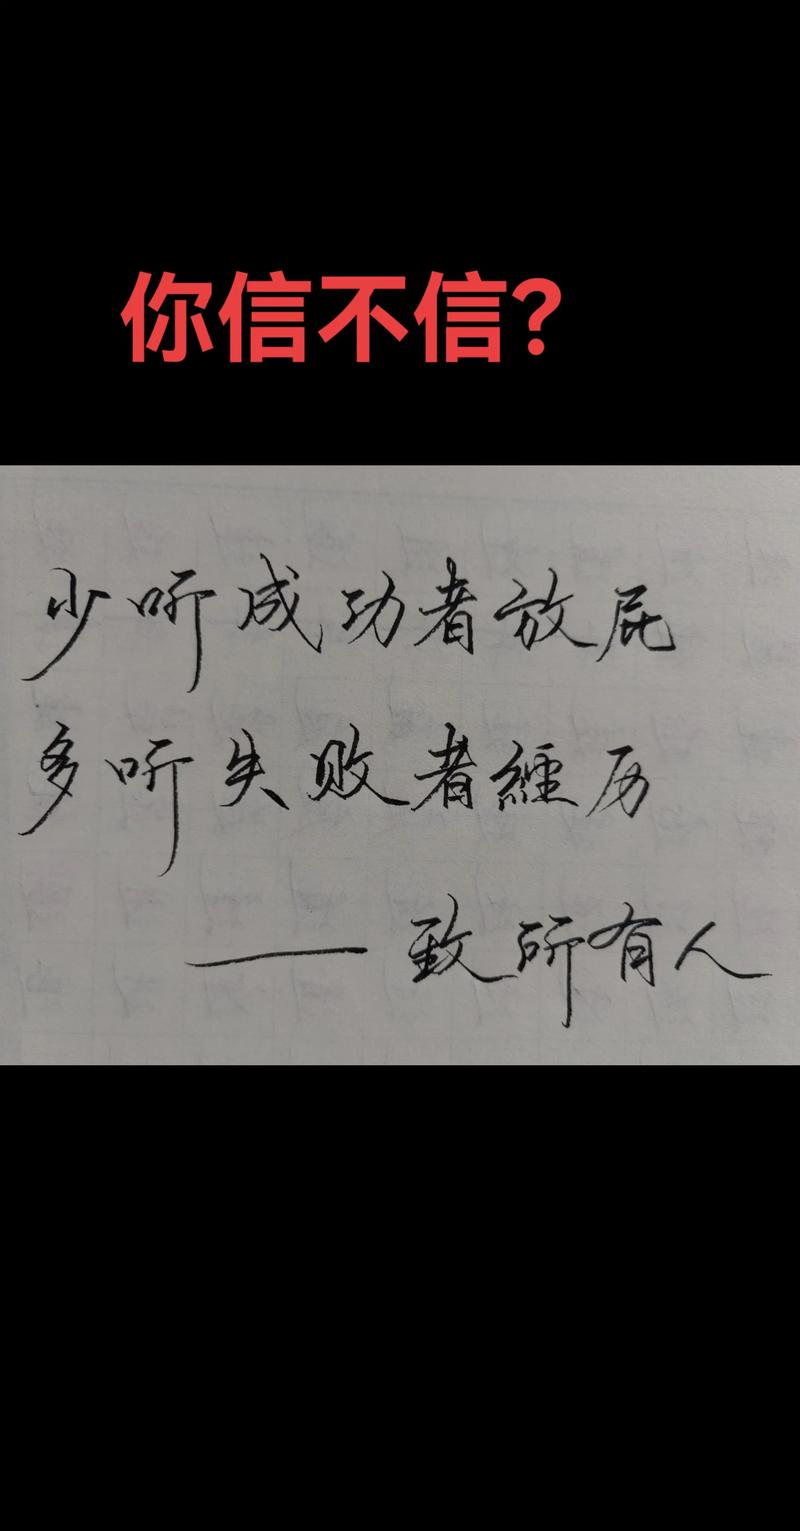 你信不信？
少听成功者放屁
多听失败者經历
——致所有人